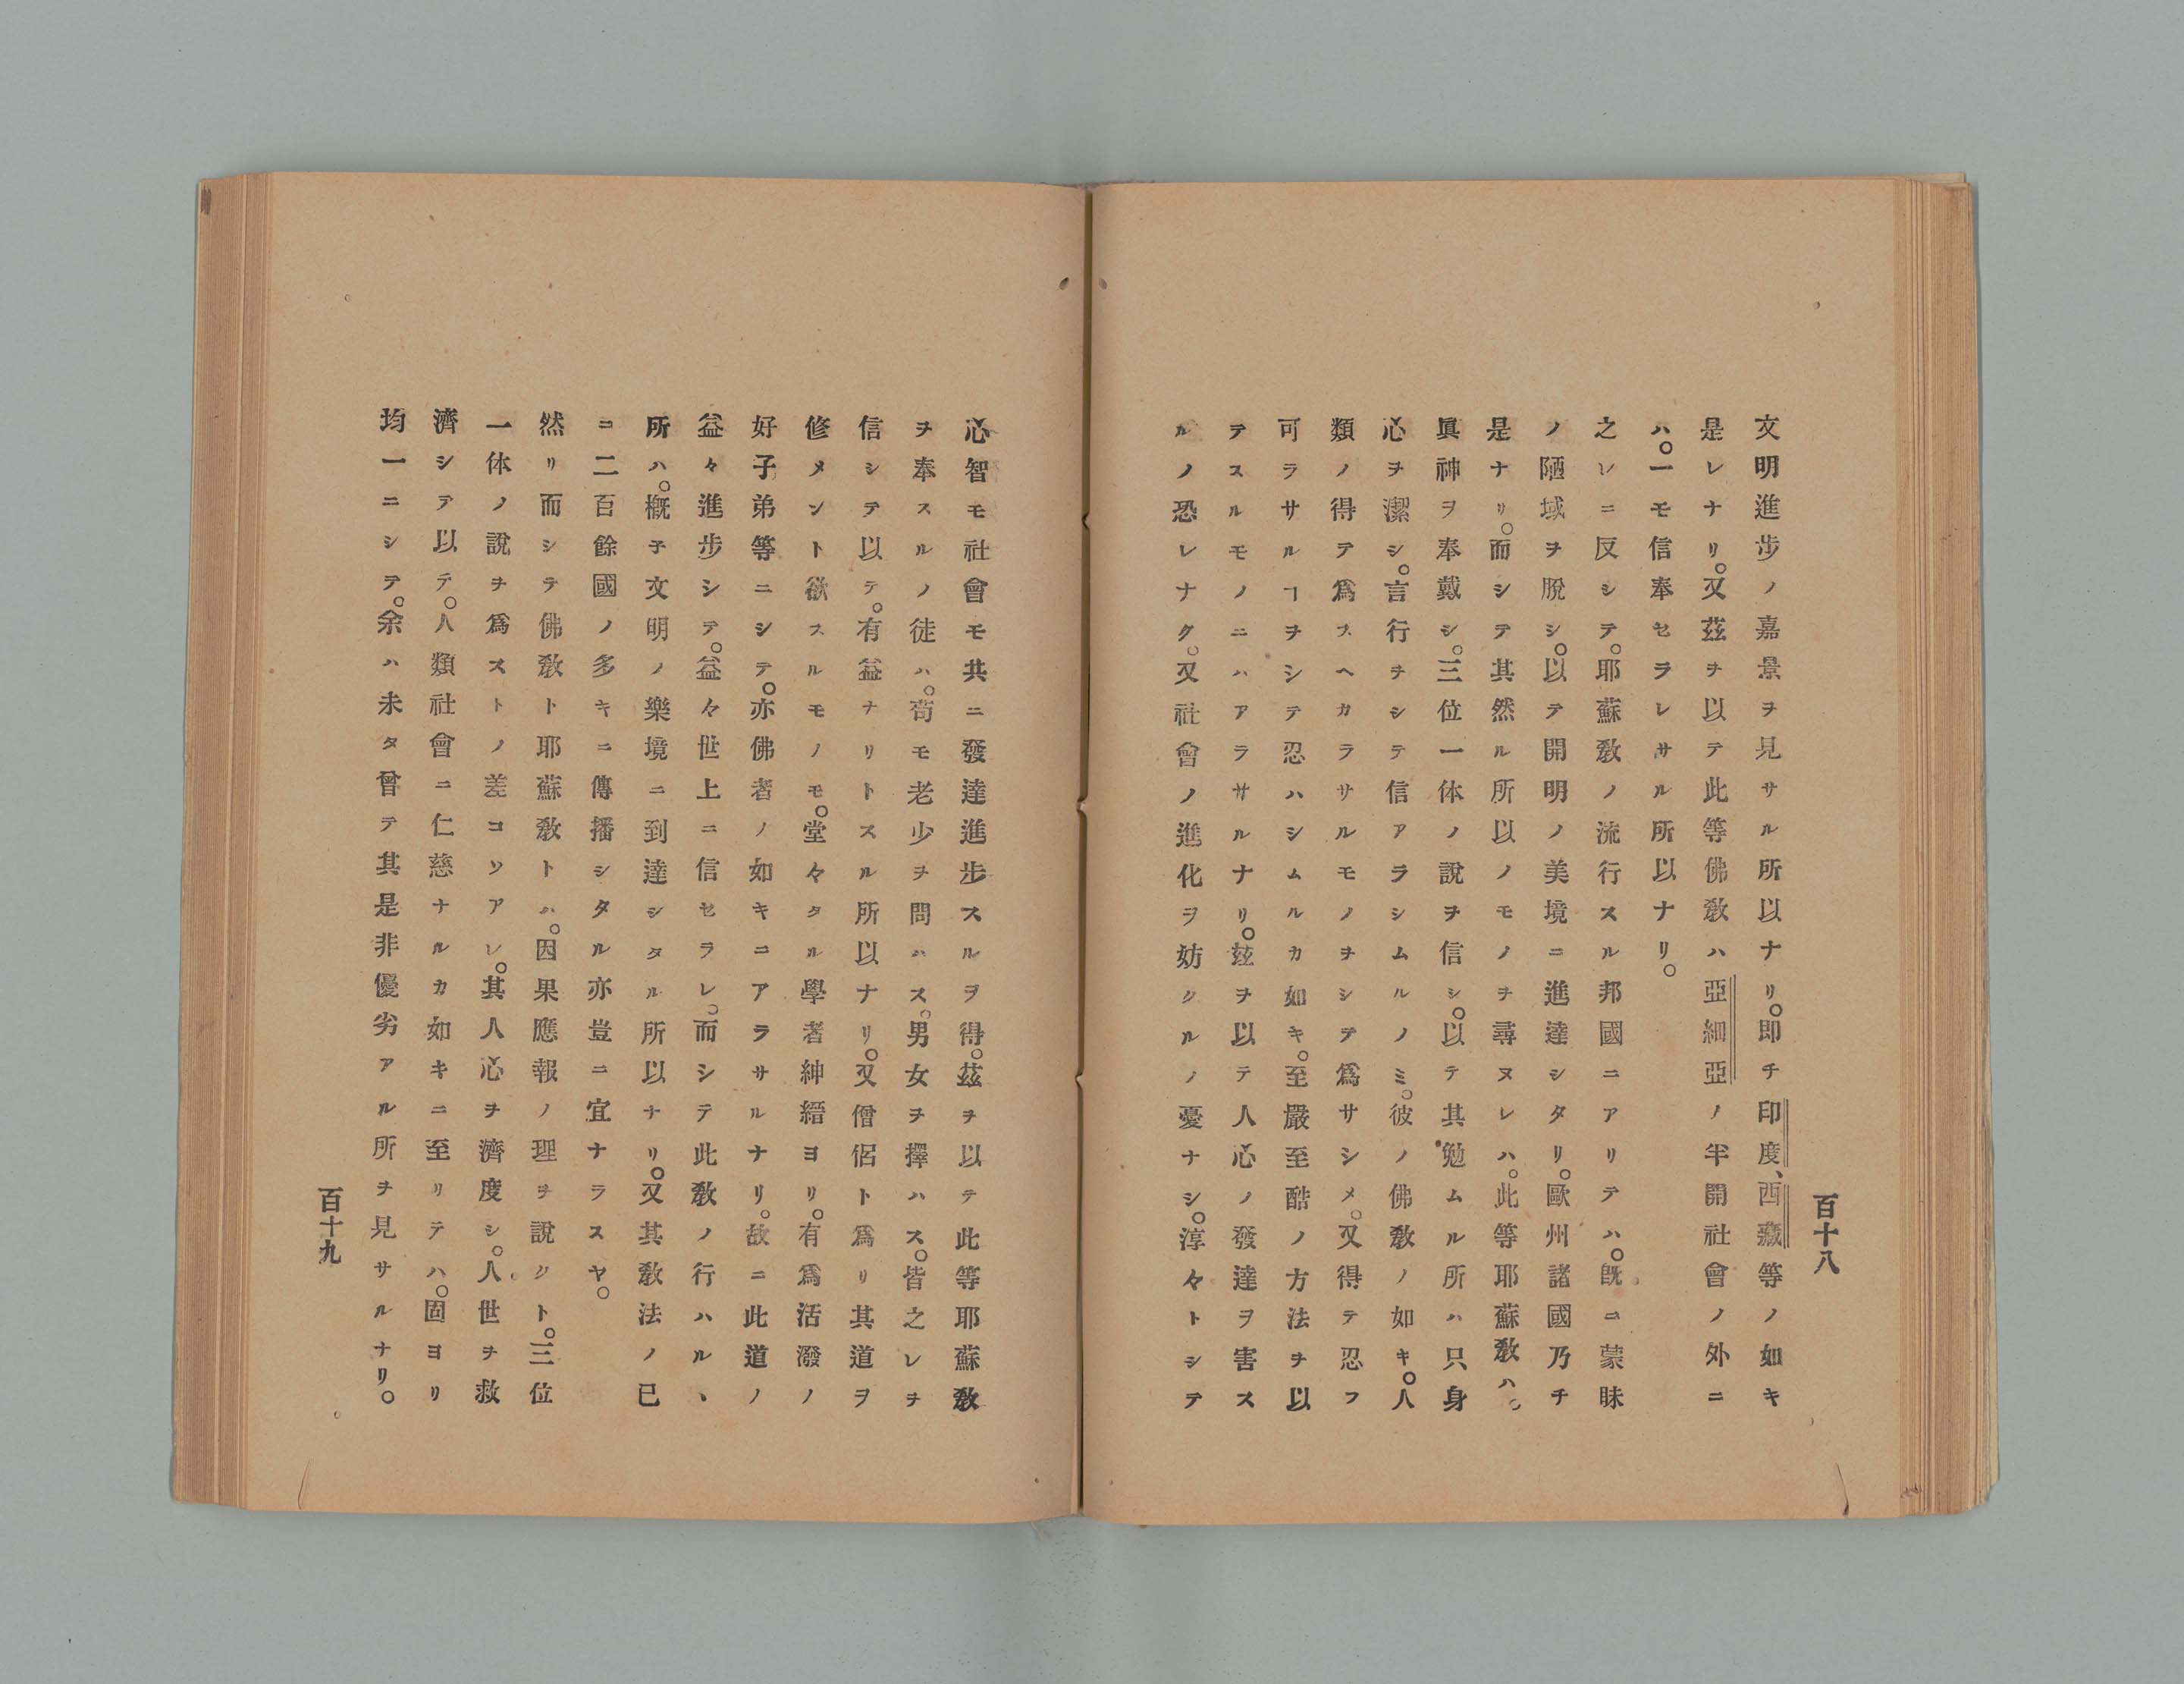 百十八
文明進步ノ嘉景ヲ見サル所以ナリ。即チ印度、西藏等ノ如キ
是レナリ。又茲チ以テ此等佛敎ハ亞細亞ノ半開社會ノ外ニ
ハ。一モ信奉セラレサル所以ナリ。
之レニ反シテ。耶蘇敎ノ流行スル邦國ニアリテハ。旣ニ蒙昧
ノ陋域ヲ脫シ。以テ開明ノ美境ニ進達シタリ。歐州諸國乃チ
是ナリ。而シテ其然ル所以ノモノチ尋ヌレハ。此等耶蘇敎ハ。
眞神ヲ奉戴シ。三位一体ノ說ヲ信シ。以テ其勉ムル所ハ只身
心ヲ潔シ。言行チシテ信アラシムルノミ。彼ノ佛敎ノ如キ。人
類ノ得テ爲スヘカラサルモノヲシテ爲サシメ。又得テ忍フ
可ラサルヿヲシテ忍ハシムルカ如キ。至嚴至酷ノ方法ヲ以
テスルモノニハアラサルナリ。茲ヲ以テ人心ノ發達ヲ害ス
ルノ恐レナク。又社會ノ進化ヲ妨クルノ憂ナシ。淳々トシテ
心智モ社會モ共ニ發達進步スルヲ得。茲ヲ以テ此等耶蘇敎
ヲ奉スルノ徒ハ。苟モ老少ヲ問ハス。男女ヲ擇ハス。皆之レチ
信シテ以テ。有益ナリトスル所以ナリ。又僧侶ト爲リ其道ヲ
修メント欲スルモノモ。堂々タル學者紳縉ヨリ。有爲活潑ノ
好子弟等ニシテ。亦佛者ノ如キニアラサルナリ。故ニ此道ノ
益々進步シテ。益々世上ニ信セラレ。而シテ此敎ノ行ハルヽ
所ハ。槪子文明ノ樂境ニ到達シタル所以ナリ。又其敎法ノ已
ニ二百餘國ノ多キニ傳播シタル亦豈ニ宜ナラスヤ。
然リ而シテ佛敎ト耶蘇敎トハ。因果應報ノ理ヲ說クト。三位
一体ノ說ヲ爲ストノ差コソアレ。其人心ヲ濟度シ。人世ヲ救
濟シテ以テ。人類社會ニ仁慈ナルカ如キニ至リテハ。固ヨリ
均一ニシテ。余ハ未タ曾テ其是非優劣アル所ヲ見サルナリ。
百十九